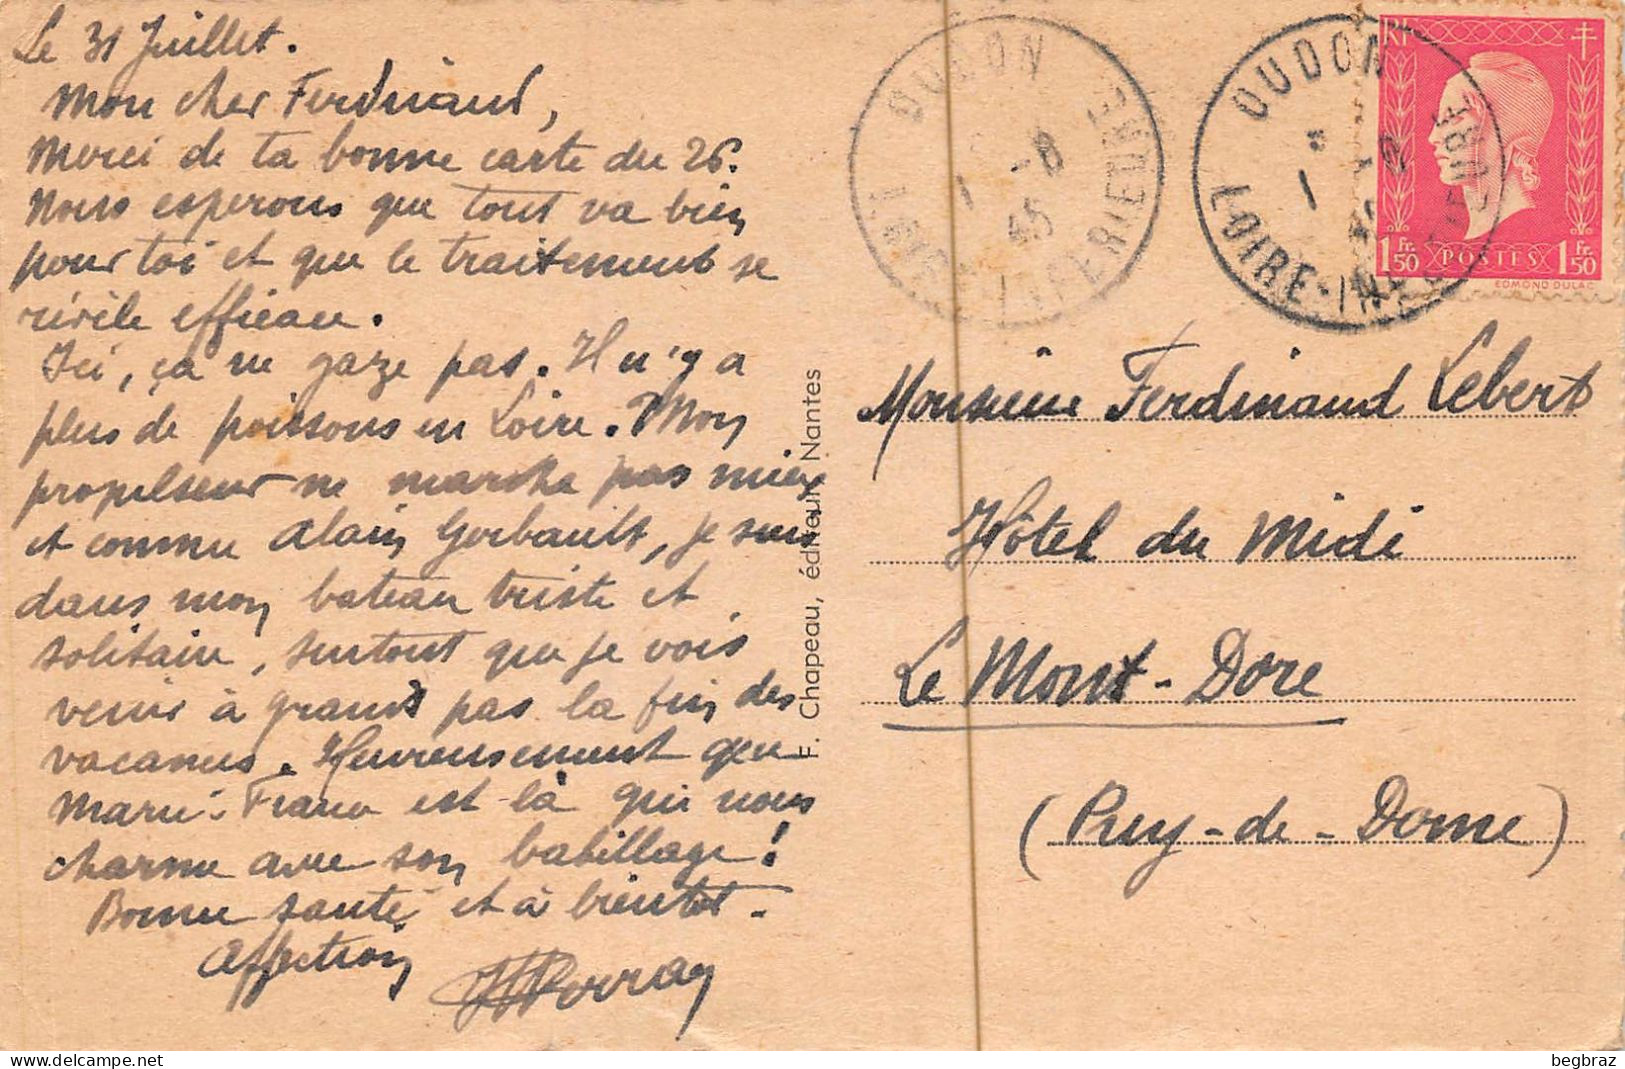 Le 31 Juillet.
Mon cher Ferdinand,
Merci de ta bonne carte du 26.
Nous esperons que tout va bien
pour toi et que le traitement se
révèle efficace.
Ici, ça ne gaze pas. Il n'y a
plus de poissons en Loire. Mon
propulseur ne marche pas mieux
et comme Alain Gerbault, je suis
dans mon bateau triste et
solitaire, surtout que je vois
venir à grands pas la fin des
vacances. Heureusement que
Marie-France est là qui nous
charme avec son babillage !
Bonne santé et à bientot.
Affection
F. Chapeau, éditeur Nantes
OUDON
1 -8
45
LOIRE-INFERIEURE
OUDON
1 -8
45
LOIRE-INFERIEURE
RF
1 Fr. 50 POSTES 1 Fr. 50
EDMOND DULAC
Monsieur Ferdinand Lebert
Hôtel du Midi
Le Mont-Dore
(Puy-de-Dome)
begbraz